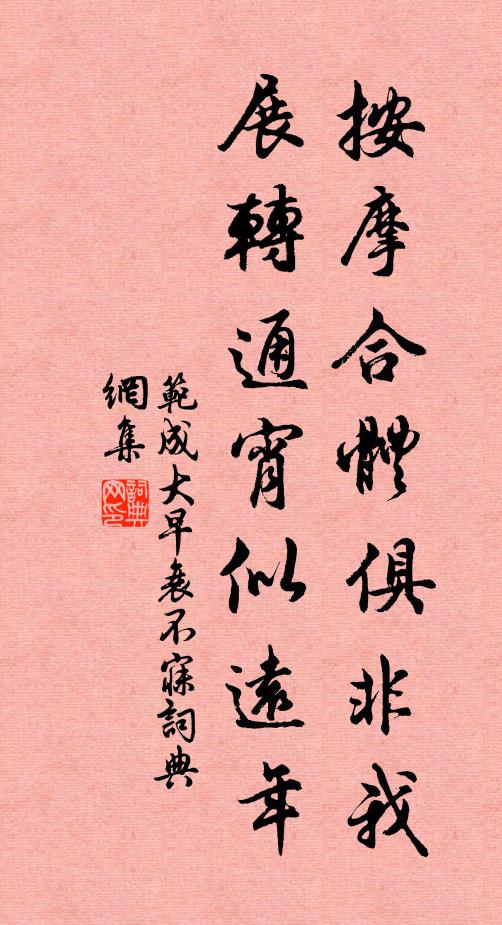 按摩合體俱非我
展轉通宵似遠年
範成大早衰不寐詞典
網集
詞典網印